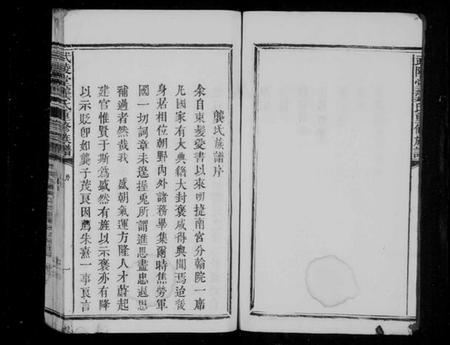 武陵堂龔氏重修族譜
序
龔氏族譜序
余自束髮愛書以來明捷南宮分翰院一席
凡國家有大典籍大封褒咸得與聞焉迨後
身居相位朝野內外諸務畢集爾時焦勞軍
國一切詞章未遑握兎所謂進思盡忠退思
補過者然哉我 盛朝氣運方隆人才蔚起
建官惟賢于斯為盛然有旌以示褒亦有降
以示貶即如龔子茂良因薦朱熹一事良言